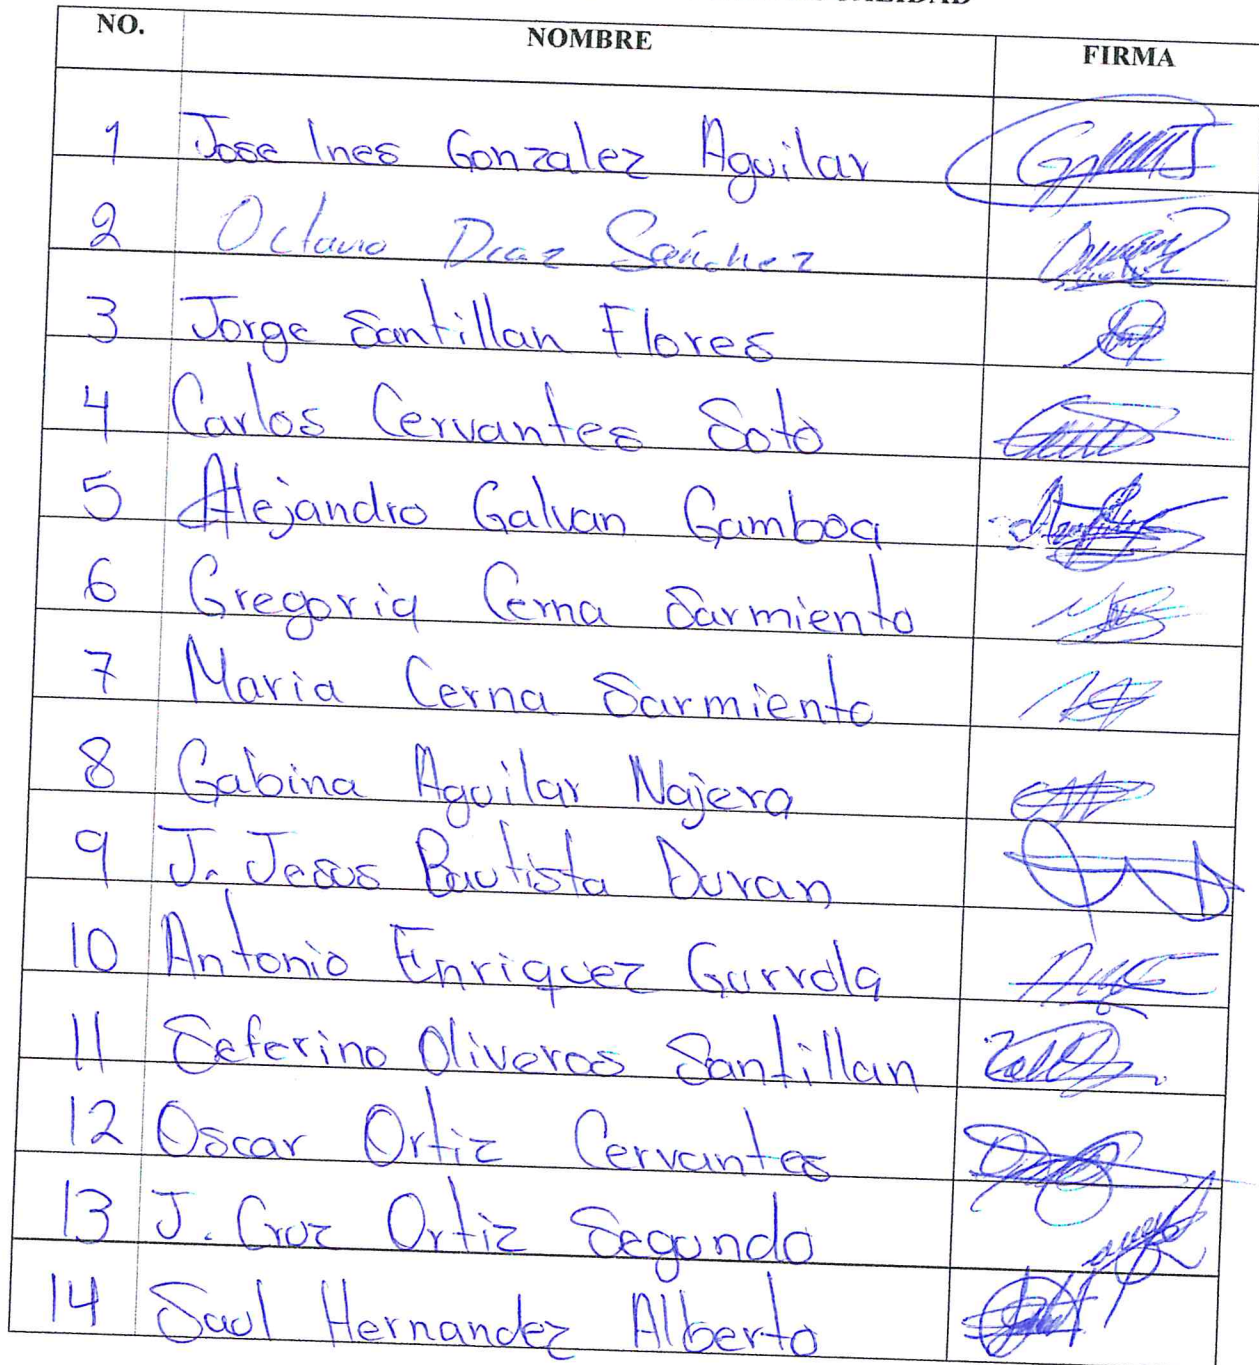 NO. NOMBRE FIRMA
1 Jose Ines Gonzalez Aguilar
2 Octavio Diaz Sánchez
3 Jorge Santillan Flores
4 Carlos Cervantes Soto
5 Alejandro Galvan Gamboa
6 Gregoria Cerna Sarmiento
7 Maria Cerna Sarmiento
8 Gabina Aguilar Najera
9 J. Jesus Bautista Duran
10 Antonio Enriquez Gurrola
11 Seferino Oliveros Santillan
12 Oscar Ortiz Cervantes
13 J. Cruz Ortiz Segundo
14 Saul Hernandez Alberto